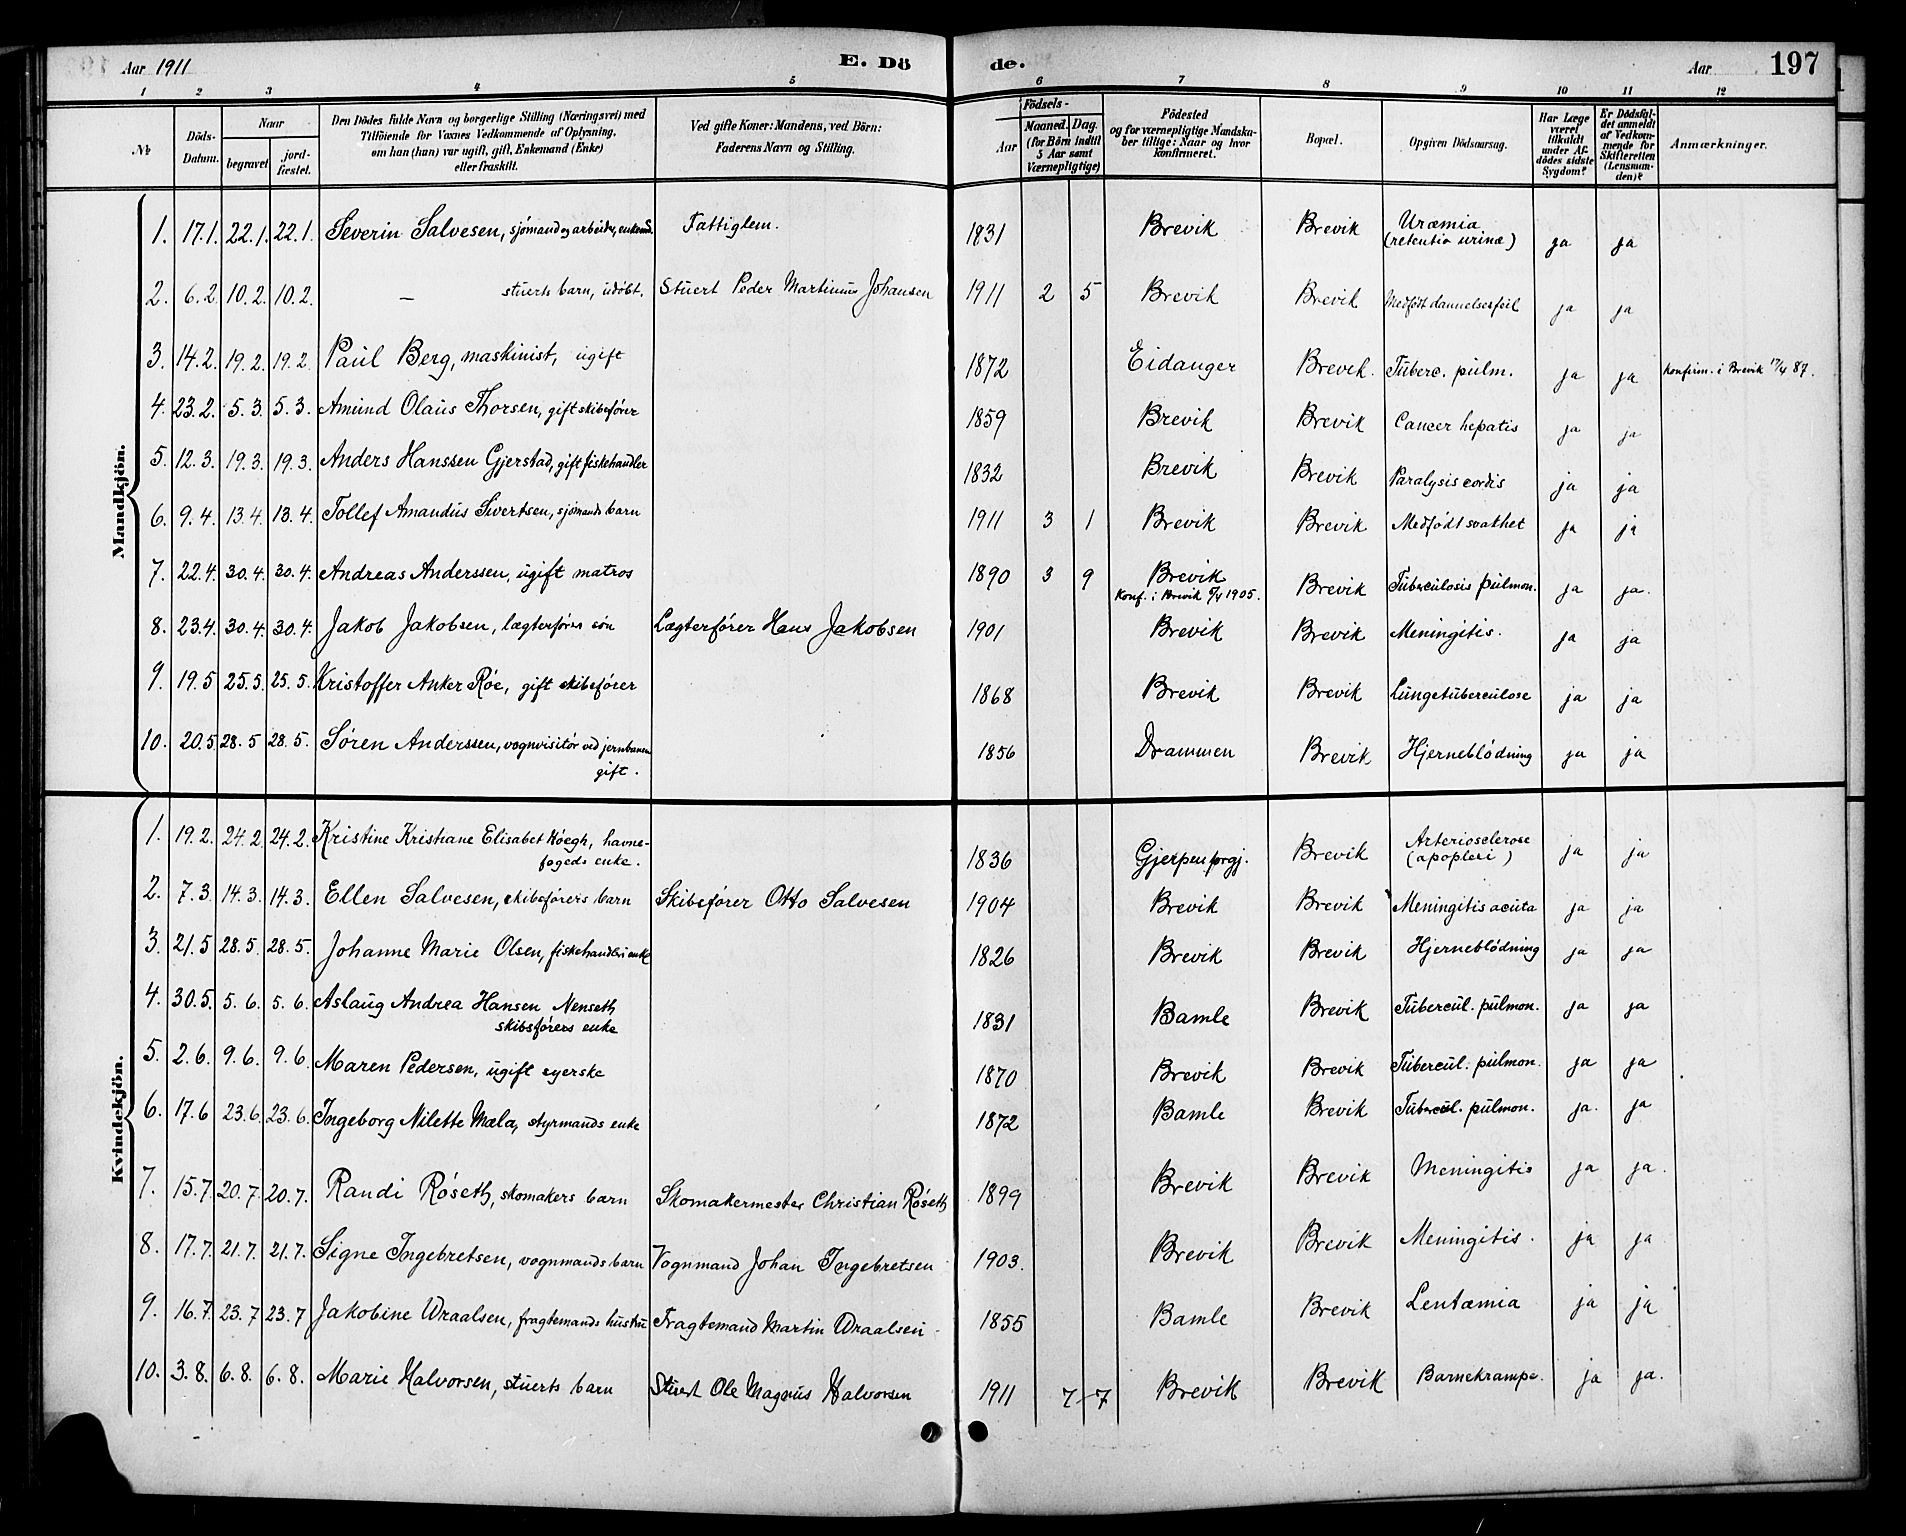 Aar 1911 E. Dö de. Aar 197
1 2 3 4 5 6 7 8 9 10 11 12
№ Döds-Datum. Naar begravet jordfæstet. Den Dödes fulde Navn og borgerlige Stilling (Næringsvei) med Tilföiende for Voxnes Vedkommende af Oplysning, om han (hun) var ugift, gift, Enkemand (Enke) eller fraskilt. Ved gifte Koner: Mandens, ved Börn: Faderens Navn og Stilling. Födsels- Aar Maaned. Dag. (for Börn indtil 5 Aar samt Værnepligtige) Födested og for værnepligtige Mandskaber tillige: Naar og hvor konfirmeret. Bopæl. Opgiven Dödsaarsag. Har Læge været tilkaldt under Afdödes sidste Sygdom? Er Dödsfaldet anmeldt af Vedkommende for Skifteretten (Lensmanden)? Anmærkninger.
Mandkjön.
1. 17.1. 22.1. 22.1. Severin Salvesen, sjømand og arbeider, enkemd. Fattiglem. 1831 Brevik Brevik Uræmia (retentio urinæ) ja ja
2. 6.2. 10.2. 10.2. — stuerts barn, udøbt. Stuert Peder Martinius Johansen 1911 2 5 Brevik Brevik Medfødt dannelsesfeil ja ja
3. 14.2. 19.2. 19.2. Paul Berg, maskinist, ugift 1872 Eidanger Brevik. Tuberc. pulm. ja ja Konfirm. i Brevik 17/4 87.
4. 23.2. 5.3. 5.3. Amund Olaus Thorsen, gift skibsfører 1859 Brevik Brevik Cancer hepatis ja ja
5. 12.3. 19.3. 19.3. Anders Hanssen Gjerstad, gift fiskehandler 1832 Brevik Brevik Paralysis cordis ja ja
6. 9.4. 13.4. 13.4. Tollef Amandus Sivertsen, sjømands barn 1911 3 1 Brevik Brevik Medfødt svathet ja ja
7. 22.4. 30.4. 30.4. Andreas Anderssen, ugift matros 1890 3 9 Brevik Brevik Tuberculosis pulmon. ja ja.
Konf. i Brevik 1905.
8. 23.4. 30.4. 30.4. Jakob Jakobsen, lægterfører søn Lægterfører Hans Jakobsen 1901 Brevik Brevik Meningitis. ja ja
9. 19.5 25.5. 25.5. Kristoffer Anker Røe, gift skibsfører 1868 Brevik Brevik Lungetuberculose ja ja
10. 20.5. 28.5 28.5. Søren Anderssen, vognvisitør ved jernbanen 1856 Drammen Brevik Hjerneblødning ja ja
gift.
Kvindekjön.
1. 19.2. 24.2. 24.2. Kristine Kristiane Elisabet Høegh, havne-
fogeds enke. 1836 Gjerpen prgj. Brevik Arteriosclerose (apoplexi) ja ja
2. 7.3. 14.3. 14.3. Ellen Salvesen, skibsførers barn Skibsfører Otto Salvesen 1904 Brevik Brevik Meningitis acuta ja ja
3. 21.5 28.5. 28.5. Johanne Marie Olsen, fiskehandlers enke 1826 Brevik Brevik Hjerneblødning ja ja
4. 30.5. 5.6. 5.6. Aslaug Andrea Hansen Nenseth
skibsførers enke 1831 Bamle Brevik Tubercul. pulmon. ja ja
5. 2.6. 9.6. 9.6. Maren Pedersen, ugift syerske 1870 Brevik Brevik Tubercul. pulmon. ja ja
6. 17.6 23.6. 23.6. Ingeborg Nilette Mæla, styrmands enke 1872 Bamle Brevik Tubercul. pulmon. ja. ja
7. 15.7. 20.7. 20.7. Randi Røseth, skomakers barn Skomakermester Christian Røseth 1899 Brevik Brevik Meningitis ja ja.
8. 17.7. 21.7. 21.7. Signe Ingebretsen, vognmands barn Vognmand Johan Ingebretsen 1903. Brevik Brevik Meningitis. ja ja
9. 16.7. 23.7 23.7 Jakobine Uraalsen, fragtemands hustru Fragtemand Martin Uraalsen 1855 Bamle Brevik Lentæmia ja ja
10. 3.8. 6.8. 6.8. Marie Halvorsen, stuerts barn Stuert Ole Magnus Halvorsen 1911 7 7 Brevik Brevik Barnekrampe. ja ja.